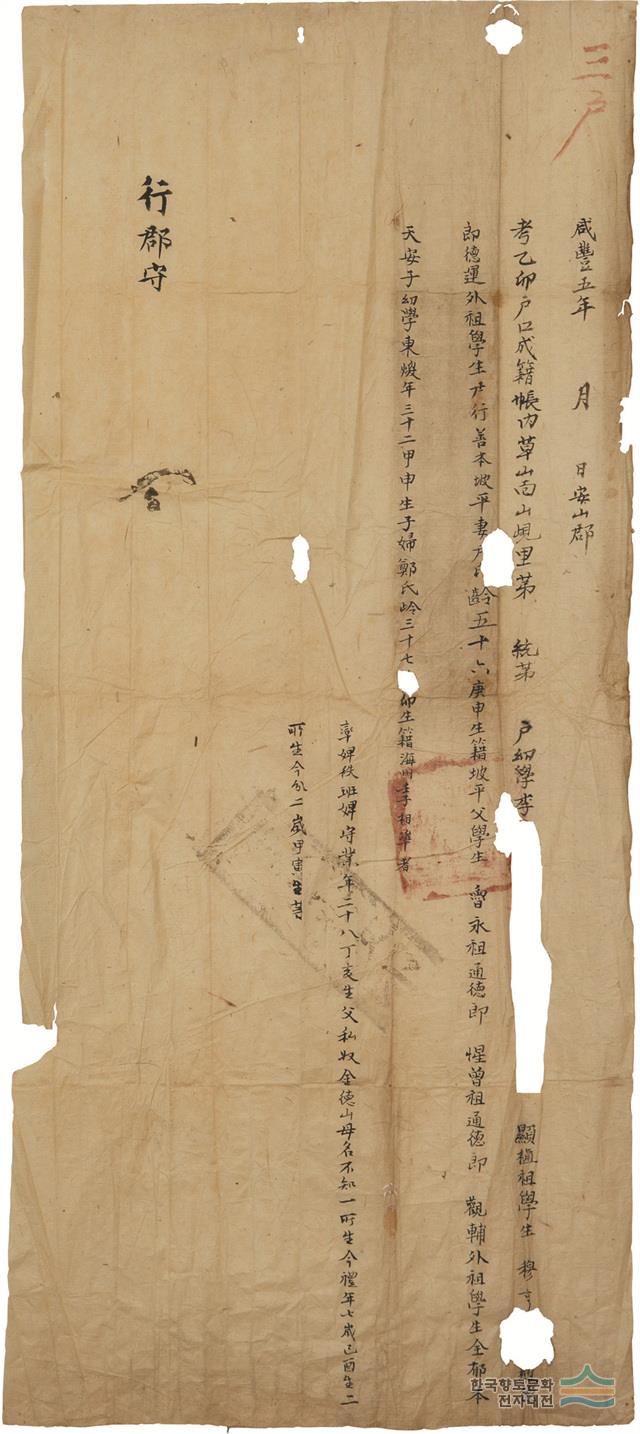 三戶
咸豐五年 月 日安山郡
考乙卯戶口成籍帳內草山面山峴里第 統第 戶幼學李 顯植祖學生 穆亨
郎德運外祖學生尹行善本坡平妻尹氏齡五十六庚申生籍坡平父學生 魯永祖通德郎 惺曾祖通德郎 觀輔外祖學生全郁本
天安子幼學東煥年三十二甲申生子婦鄭氏齡三十七 卯生籍海州李相準者
率婢秩班婢守業年二十八丁亥生父私奴金德山母名不知一所生今禮年七歲己酉生二
所生今分二歲甲寅生等
行郡守
한국향토문화
전자대전